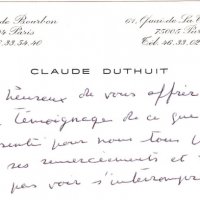 de Bourbon 61, Quai de La
4 Paris 75005 Par
6.33.54.40 Tel. 46.33.02
CLAUDE DUTHUIT
heureux de vous offrir
témoignage de ce que
senti pour nous tous
ses remerciements et
pas voir s'interrompre